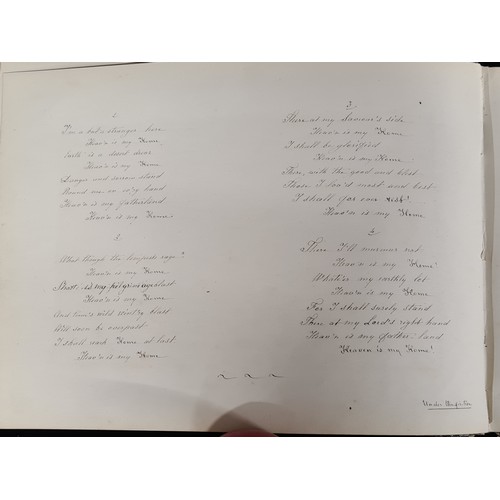 I'm but a stranger here
Heav'n is my Home
Earth is a desert drear
Heav'n is my Home
Danger and sorrow stand
Round me on ev'ry hand
Heav'n is my fatherland
Heav'n is my Home.
What though the tempests rage?
Heav'n is my Home
Short is my pilgrimage
Heav'n is my Home
And time's wild wint'ry blast
Will soon be overpast
I shall reach Home at last
Heav'n is my Home.
3
There at my Saviour's side
Heav'n is my Home
I shall be glorified
Heav'n is my Home.
There, with the good and blest
Those I lov'd most and best
I shall for ever rest!
Heav'n is my Home
4
There I'll murmur not
Heav'n is my Home!
Whate'er my earthly lot
Heav'n is my Home.
For I shall surely stand
There at my Lord's right hand
Heav'n is my father-land
Heaven is my Home!